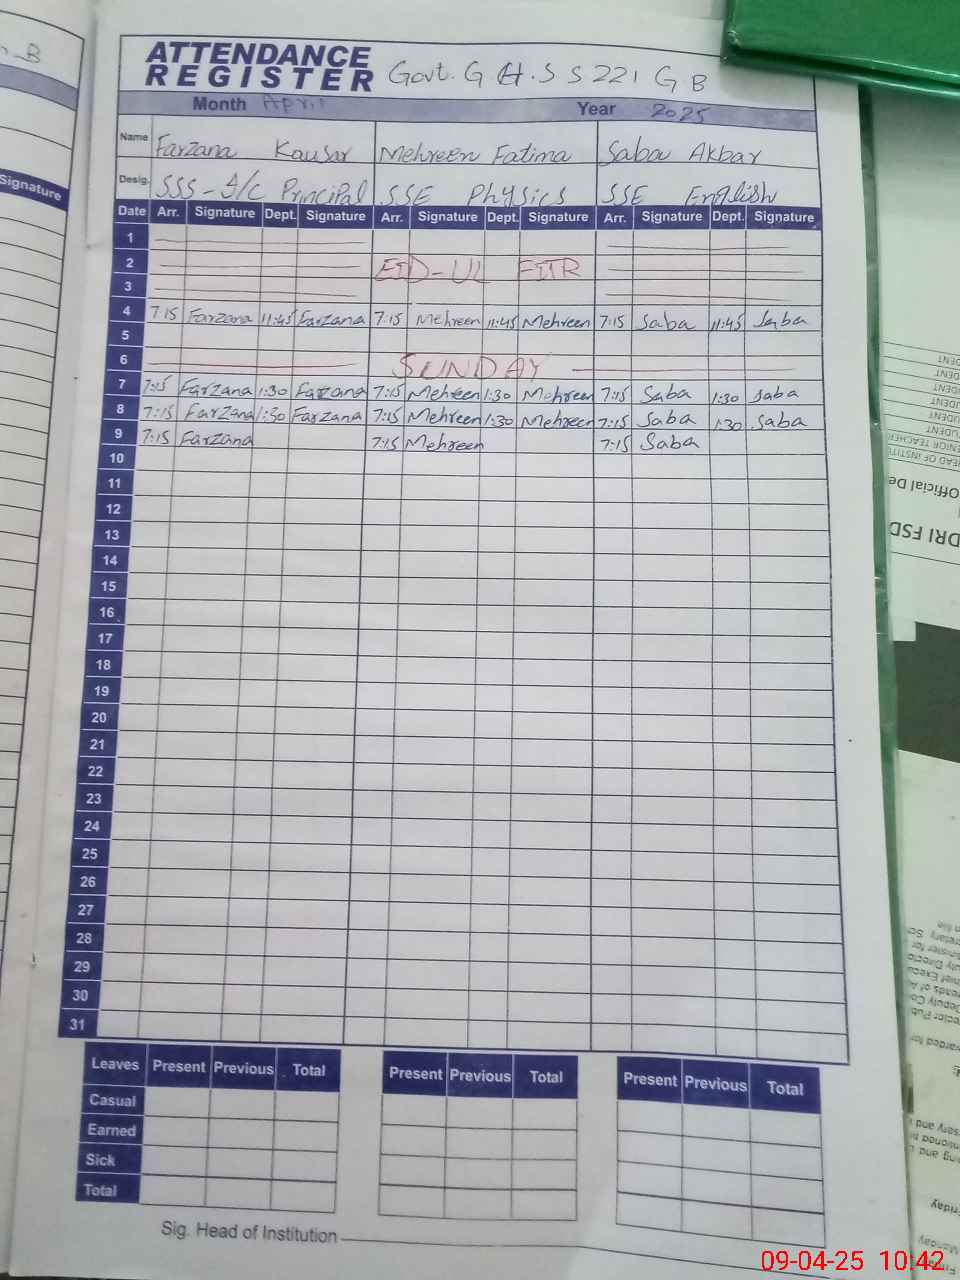 ATTENDANCE
REGISTER Govt. G H.S S 221 G.B
Month April Year 2025
Name Farzana Kausar Mehreen Fatima Saba Akbar
Desig. SSS - I/C Principal SSE Physics SSE English
Date Arr. Signature Dept. Signature Arr. Signature Dept. Signature Arr. Signature Dept. Signature
1
2 EID-UL FITR
3
4 7:15 Farzana 11:45 Farzana 7:15 Mehreen 11:45 Mehreen 7:15 Saba 11:45 Saba
5
6 SUNDAY
7 7:15 Farzana 1:30 Farzana 7:15 Mehreen 1:30 Mehreen 7:15 Saba 1:30 Saba
8 7:15 Farzana 1:30 Farzana 7:15 Mehreen 1:30 Mehreen 7:15 Saba 1:30 Saba
9 7:15 Farzana 7:15 Mehreen 7:15 Saba
10
11
12
13
14
15
16
17
18
19
20
21
22
23
24
25
26
27
28
29
30
31
Leaves Present Previous Total Present Previous Total Present Previous Total
Casual
Earned
Sick
Total
Sig. Head of Institution
Signature
DRI FSD
09-04-25 10:42